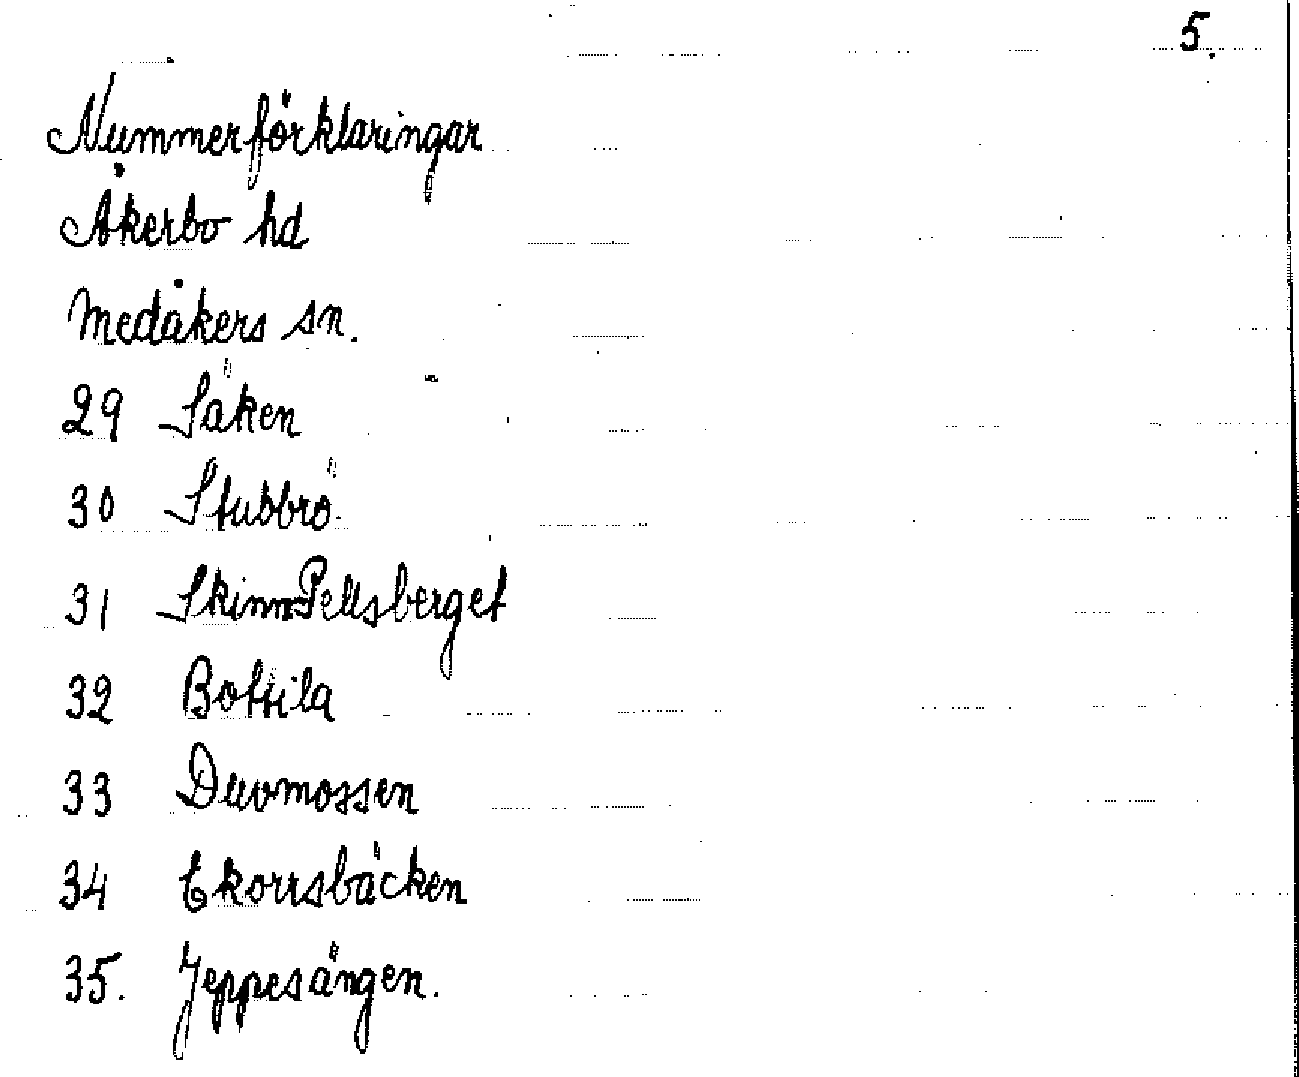 5.
Nummerförklaringar
Åkerbo hd
Medåkers sn.
29 Säken
30 Stubbrö
31 SkinnPellsberget
32 Bottila
33 Duvmossen
34 Ekorrsbäcken
35. Jeppesängen.